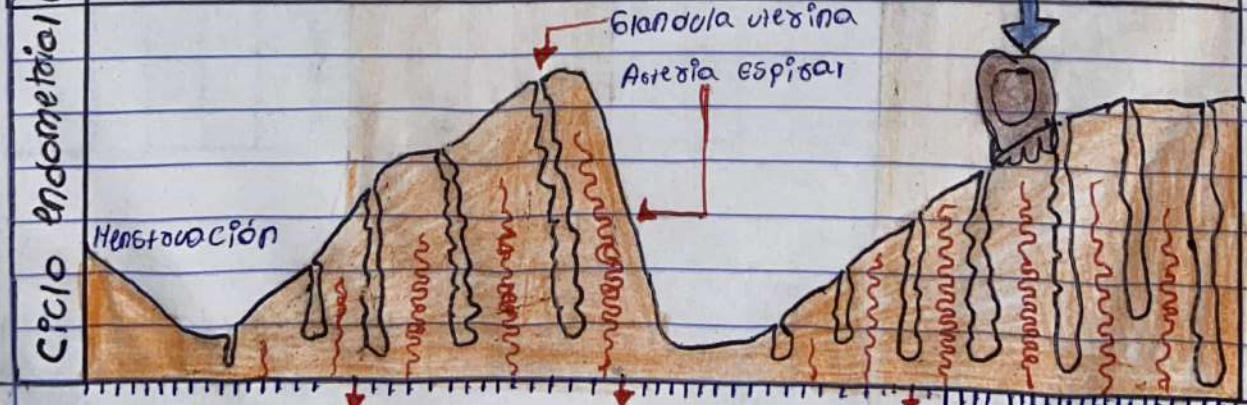 Ciclo endometrial
Glandula uterina
Arteria espiral
Menstruación